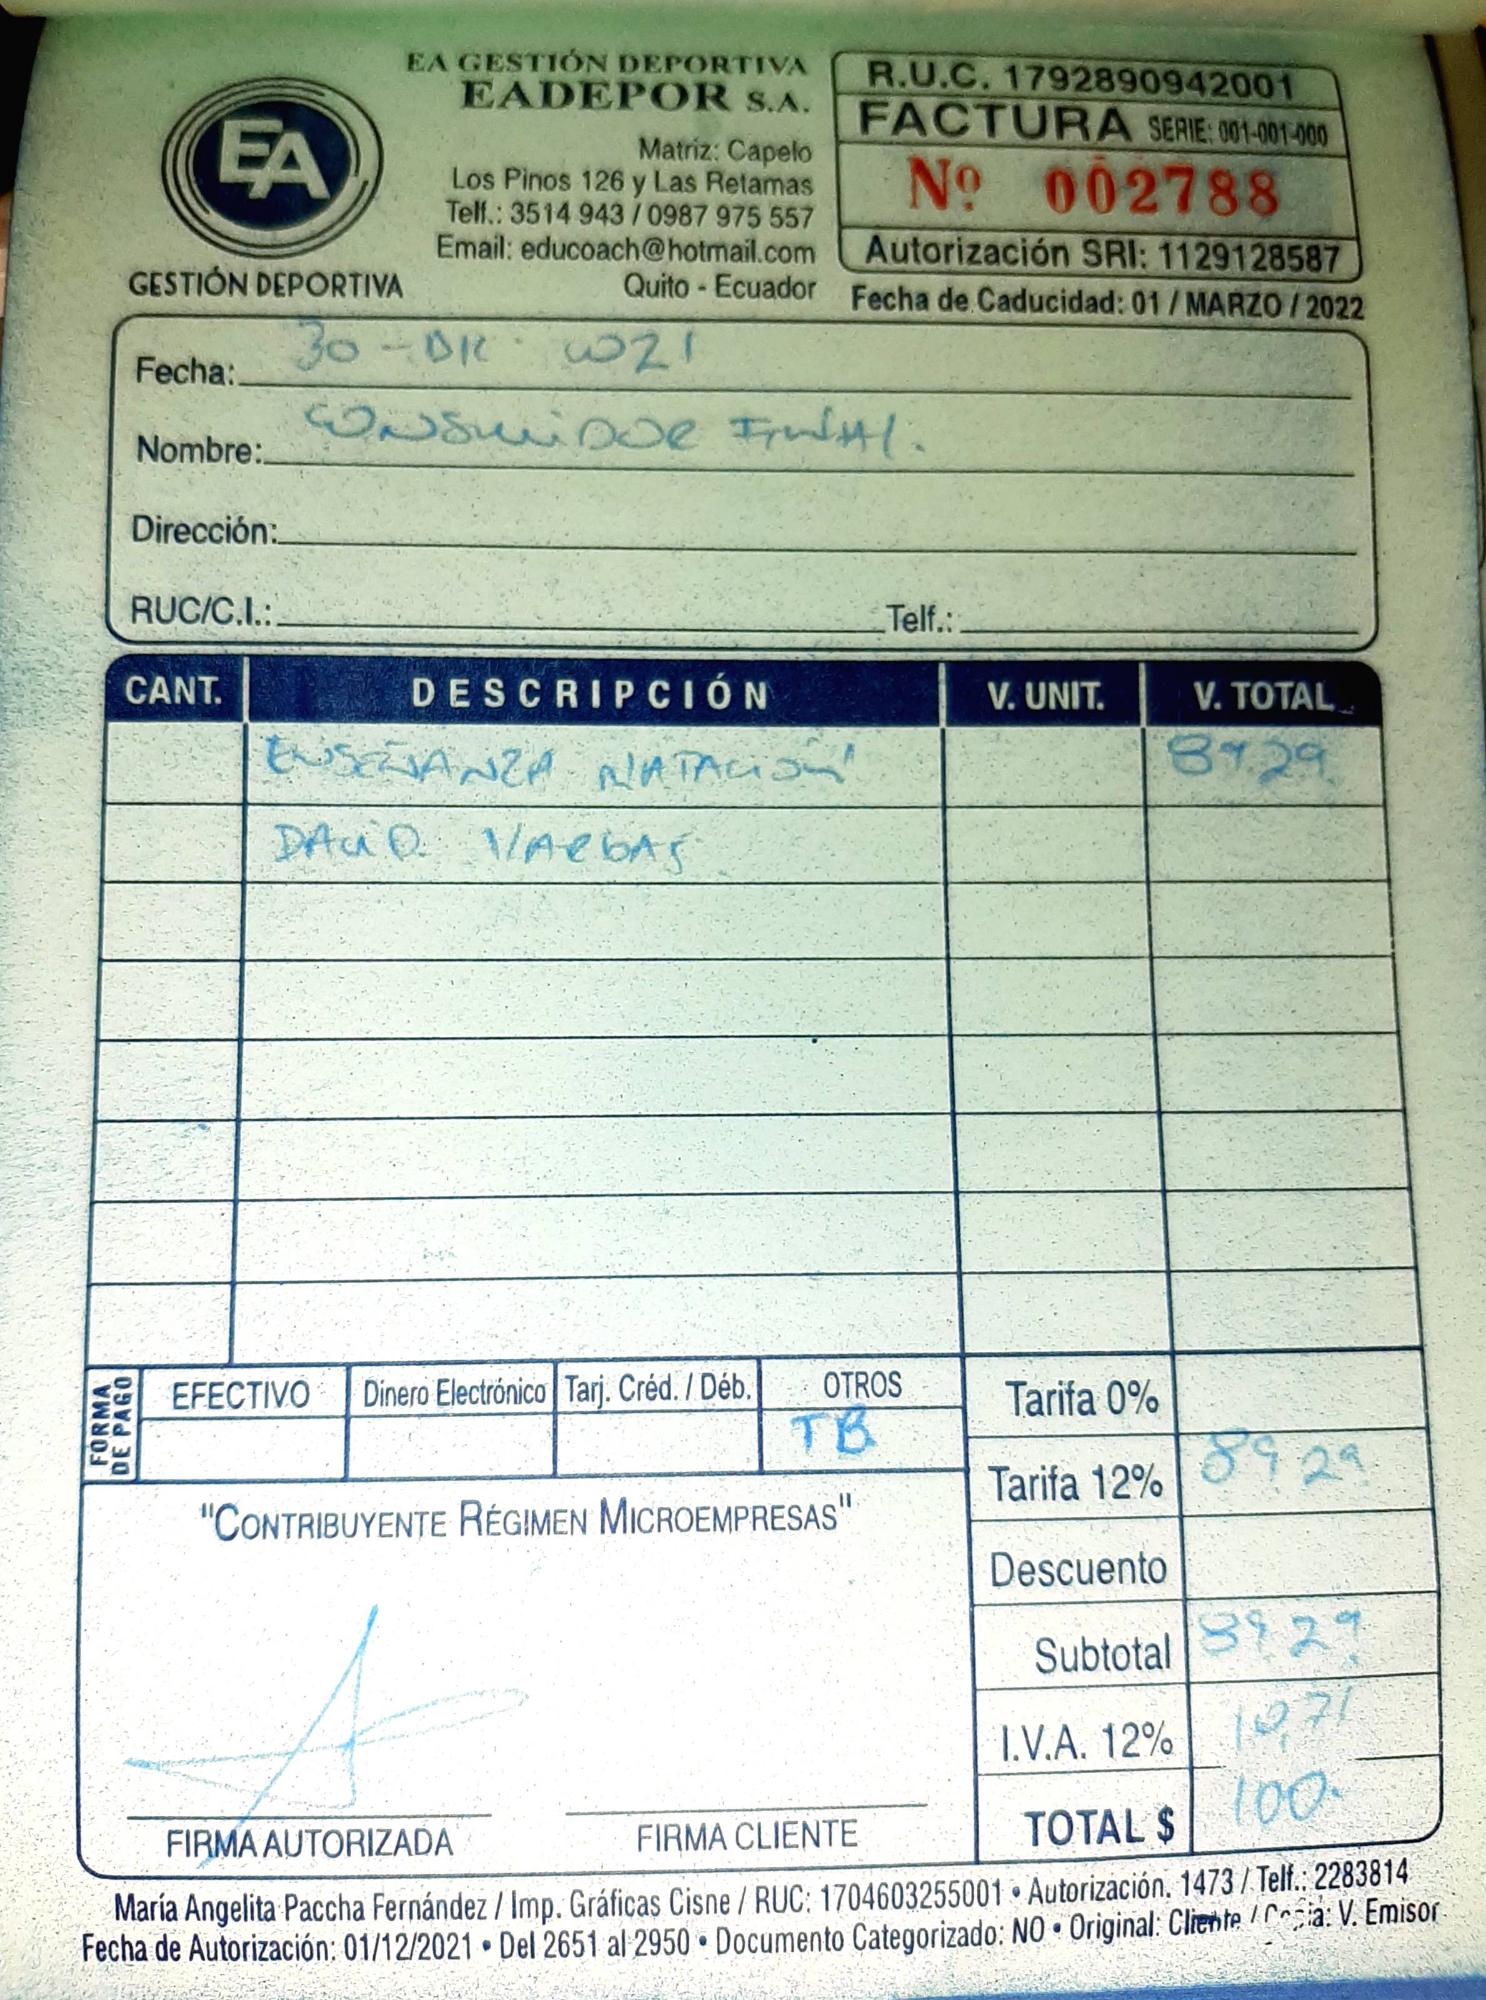 EA GESTIÓN DEPORTIVA
EADEPOR S.A.
EA
GESTIÓN DEPORTIVA
Matriz: Capelo
Los Pinos 126 y Las Retamas
Telf.: 3514 943 / 0987 975 557
Email: educoach@hotmail.com
Quito - Ecuador
R.U.C. 1792890942001
FACTURA SERIE: 001-001-000
Nº 002788
Autorización SRI: 1129128587
Fecha de Caducidad: 01 / MARZO / 2022
Fecha: 30 - DIC 2021
Nombre: CONSUMIDOR FINAL.
Dirección:
RUC/C.I.: Telf.:
CANT. DESCRIPCIÓN V. UNIT. V. TOTAL
ENSEÑANZA NATACIÓN 89.29
DAVID VARGAS
FORMA DE PAGO
EFECTIVO Dinero Electrónico Tarj. Créd. / Déb. OTROS
TB
Tarifa 0%
Tarifa 12% 89 29
Descuento
Subtotal 89.29
I.V.A. 12% 10,71
TOTAL $ 100.
"CONTRIBUYENTE RÉGIMEN MICROEMPRESAS"
FIRMA AUTORIZADA FIRMA CLIENTE
María Angelita Paccha Fernández / Imp. Gráficas Cisne / RUC: 1704603255001 • Autorización. 1473 / Telf.: 2283814
Fecha de Autorización: 01/12/2021 • Del 2651 al 2950 • Documento Categorizado: NO • Original: Cliente / Copia: V. Emisor